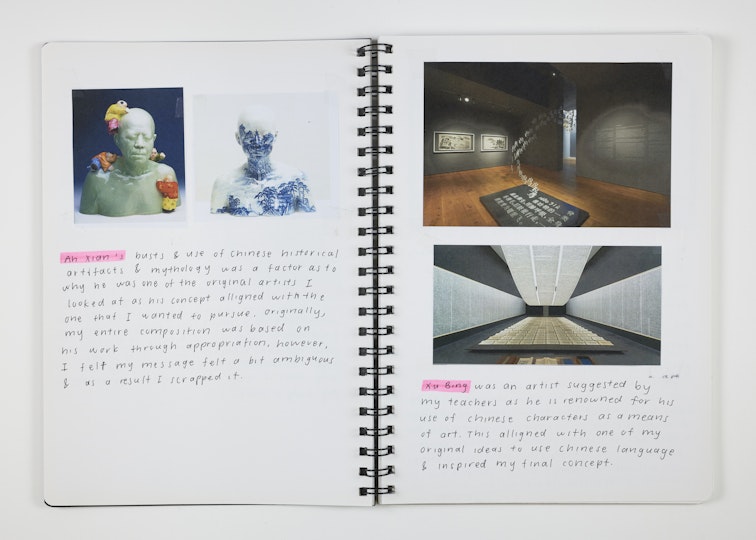 Ah Xian's busts & use of Chinese historical
artifacts & mythology was a factor as to
why he was one of the original artists I
looked at as his concept alligned with the
one that I wanted to pursue. Originally,
my entire composition was based on
his work through appropriation, however,
I felt my message felt a bit ambiguous
& as a result I scrapped it.
Xu Bing was an artist suggested by
my teachers as he is renowned for his
use of Chinese characters as a means
of art. This alligned with one of my
original ideas to use Chinese language
& inspired my final concept.